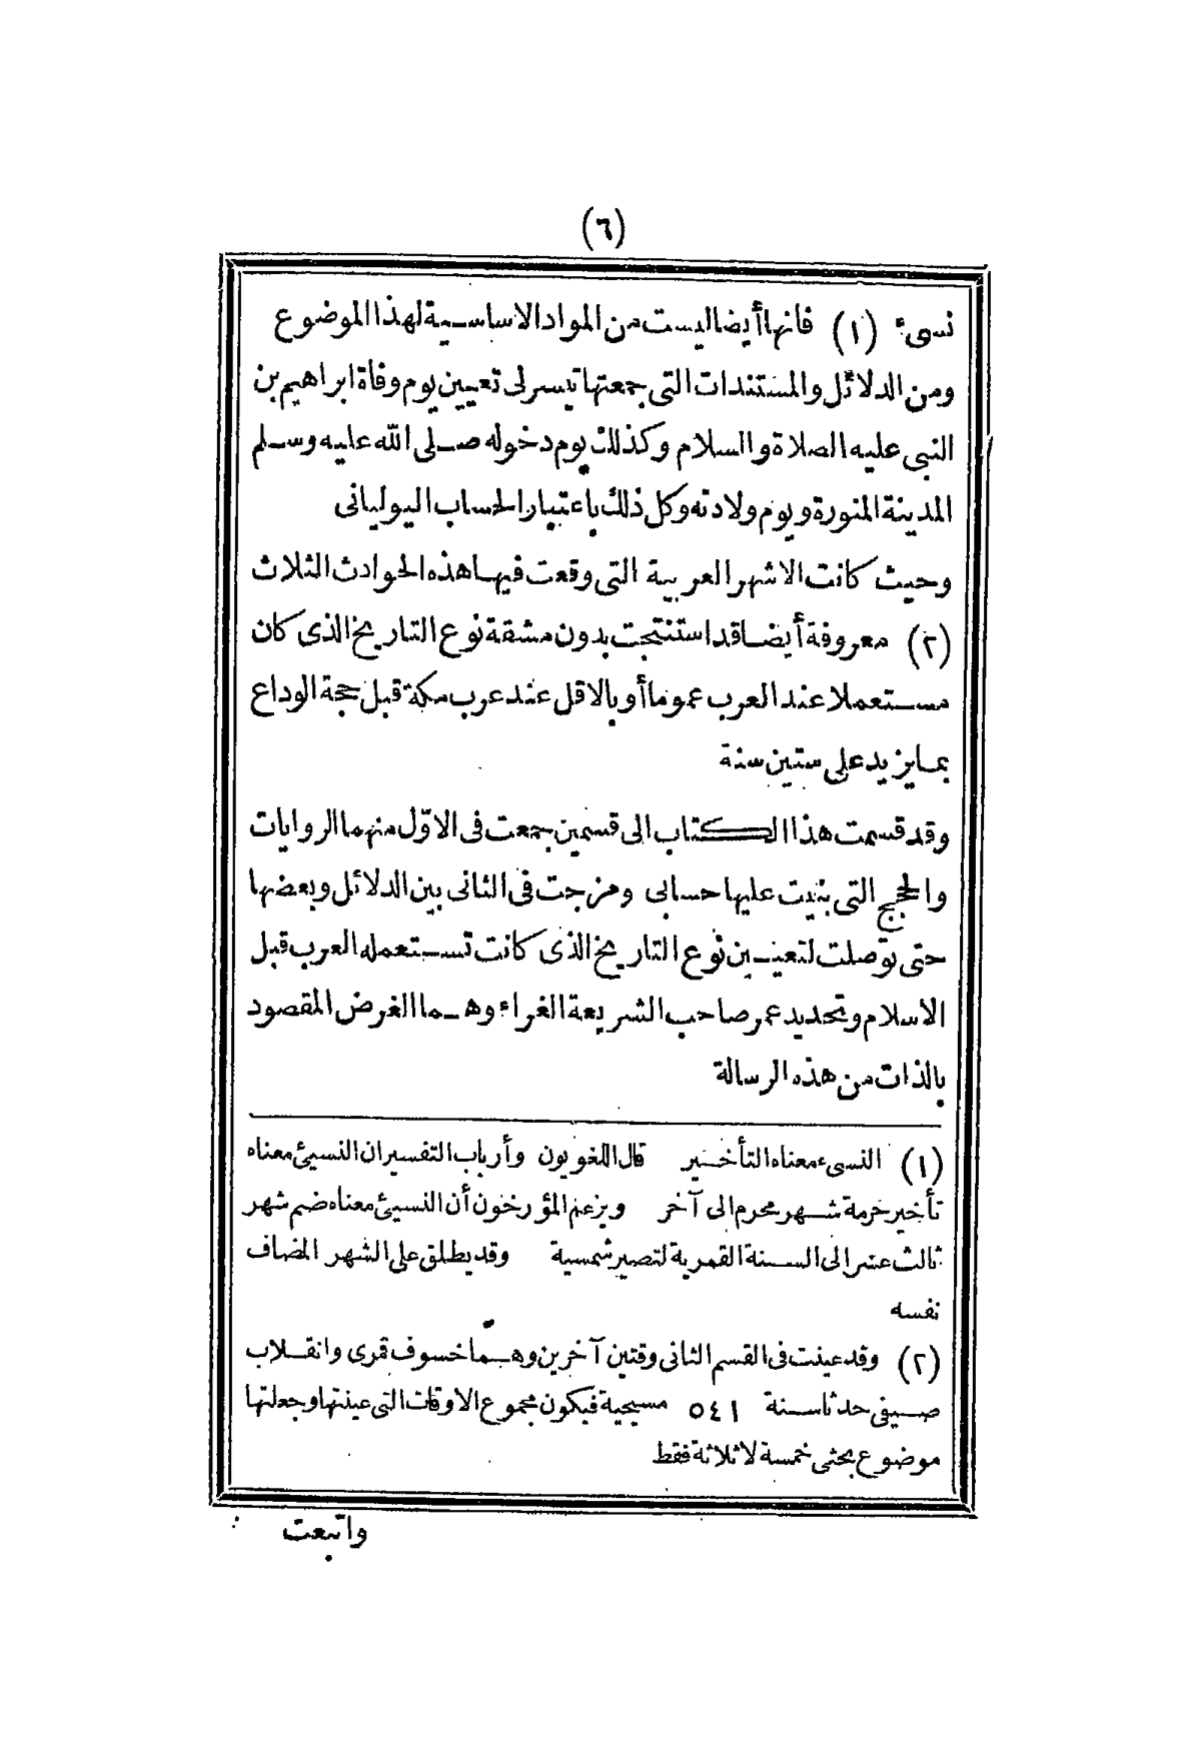 (٦)
نسىء (١) فانها أيضا ليست من المواد الاساسية لهذا الموضوع
ومن الدلائل والمستندات التى جمعتها تيسر لى تعيين يوم وفاة ابراهيم بن
النبي عليه الصلاة والسلام وكذلك يوم دخوله صلى الله عليه وسلم
المدينة المنورة ويوم ولادته وكل ذلك باعتبار الحساب اليوليانى
وحيث كانت الاشهر العربية التى وقعت فيها هذه الحوادث الثلاث
(٢) معروفة أيضا قد استنتجت بدون مشقة نوع التاريخ الذى كان
مستعملا عند العرب عموما أو بالاقل عند عرب مكة قبل حجة الوداع
بما يزيد على ستين سنة
وقد قسمت هذا الكتاب الى قسمين جمعت فى الاوّل منهما الروايات
والحجج التى بنيت عليها حسابى ومزجت فى الثانى بين الدلائل وبعضها
حتى توصلت لتعيين نوع التاريخ الذى كانت تستعمله العرب قبل
الاسلام وتحديد عمر صاحب الشريعة الغراء وهما الغرض المقصود
بالذات من هذه الرسالة
(١) النسىء معناه التأخير قال اللغويون وأرباب التفسير ان النسيئ معناه
تأخير حرمة شهر محرم الى آخر ويزعم المؤرخون أن النسيئ معناه ضم شهر
ثالث عشر الى السنة القمرية لتصير شمسية وقد يطلق على الشهر المضاف
نفسه
(٢) وقد عينت فى القسم الثانى وقتين آخرين وهما خسوف قمرى وانقلاب
صيفى حدثا سنة ٥٤١ مسيحية فيكون مجموع الاوقات التى عينتها وجعلتها
موضوع بحثى خمسة لا ثلاثة فقط
واتبعت